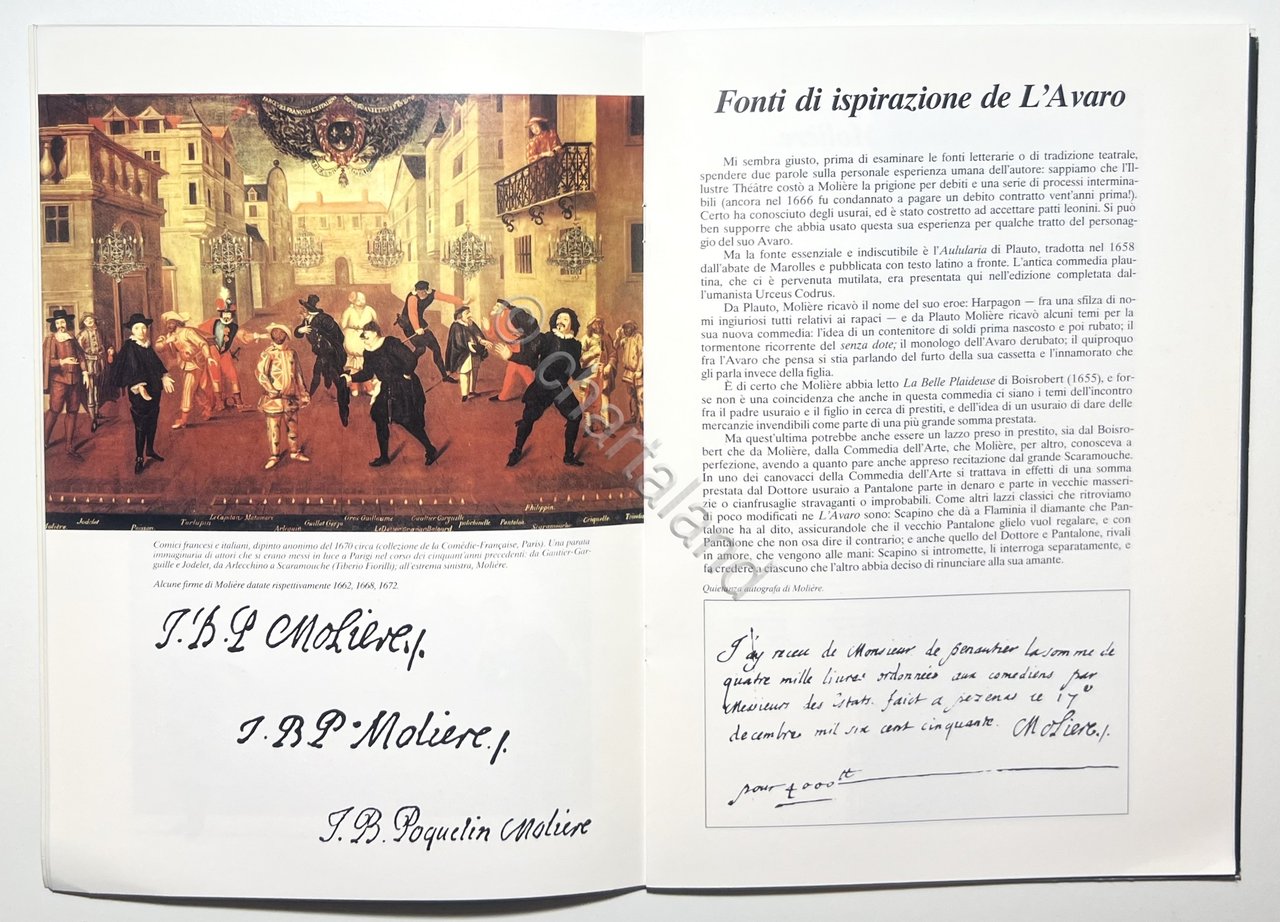 Molière. Jodelet. Poisson. Turlupin. Le Capitan Matamore. Arlequin. Guillot Gorju. Gros Guillaume. Le Dottor Gratian Balourd. Gautier Garguille. Polichinelle. Pantalon. Philippin. Scaramouche. Briguelle. Trivelin
Comici francesi e italiani, dipinto anonimo del 1670 circa (collezione de la Comédie-Française, Paris). Una parata
immaginaria di attori che si erano messi in luce a Parigi nel corso dei cinquant'anni precedenti: da Gautier-Gar-
guille e Jodelet, da Arlecchino a Scaramouche (Tiberio Fiorilli); all'estrema sinistra, Molière.
Alcune firme di Molière datate rispettivamente 1662, 1668, 1672.
J.B.P Moliere./.
J.B P. Moliere./.
J.B. Poquelin Moliere
Fonti di ispirazione de L'Avaro
Mi sembra giusto, prima di esaminare le fonti letterarie o di tradizione teatrale,
spendere due parole sulla personale esperienza umana dell'autore: sappiamo che l'Il-
lustre Théâtre costò a Molière la prigione per debiti e una serie di processi intermina-
bili (ancora nel 1666 fu condannato a pagare un debito contratto vent'anni prima!).
Certo ha conosciuto degli usurai, ed è stato costretto ad accettare patti leonini. Si può
ben supporre che abbia usato questa sua esperienza per qualche tratto del personag-
gio del suo Avaro.
Ma la fonte essenziale e indiscutibile è l'Aulularia di Plauto, tradotta nel 1658
dall'abate de Marolles e pubblicata con testo latino a fronte. L'antica commedia plau-
tina, che ci è pervenuta mutilata, era presentata qui nell'edizione completata dal-
l'umanista Urceus Codrus.
Da Plauto, Molière ricavò il nome del suo eroe: Harpagon — fra una sfilza di no-
mi ingiuriosi tutti relativi ai rapaci — e da Plauto Molière ricavò alcuni temi per la
sua nuova commedia: l'idea di un contenitore di soldi prima nascosto e poi rubato; il
tormentone ricorrente del senza dote; il monologo dell'Avaro derubato; il quiproquo
fra l'Avaro che pensa si stia parlando del furto della sua cassetta e l'innamorato che
gli parla invece della figlia.
È di certo che Molière abbia letto La Belle Plaideuse di Boisrobert (1655), e for-
se non è una coincidenza che anche in questa commedia ci siano i temi dell'incontro
fra il padre usuraio e il figlio in cerca di prestiti, e dell'idea di un usuraio di dare delle
mercanzie invendibili come parte di una più grande somma prestata.
Ma quest'ultima potrebbe anche essere un lazzo preso in prestito, sia dal Boisro-
bert che da Molière, dalla Commedia dell'Arte, che Molière, per altro, conosceva a
perfezione, avendo a quanto pare anche appreso recitazione dal grande Scaramouche.
In uno dei canovacci della Commedia dell'Arte si trattava in effetti di una somma
prestata dal Dottore usuraio a Pantalone parte in denaro e parte in vecchie masseri-
zie o cianfrusaglie stravaganti o improbabili. Come altri lazzi classici che ritroviamo
di poco modificati ne L'Avaro sono: Scapino che dà a Flaminia il diamante che Pan-
talone ha al dito, assicurandole che il vecchio Pantalone glielo vuol regalare, e con
Pantalone che non osa dire il contrario; e anche quello del Dottore e Pantalone, rivali
in amore, che vengono alle mani: Scapino si intromette, li interroga separatamente, e
fa credere a ciascuno che l'altro abbia deciso di rinunciare alla sua amante.
Quietanza autografa di Molière.
J'ay receu de Monsieur de penautier la somme de
quatre mille liures ordonnées aux comediens par
Messieurs des Estats. faict a pezenas ce 17e
decembre mil six cent cinquante. Moliere./.
pour 4000 tt
© chartaland